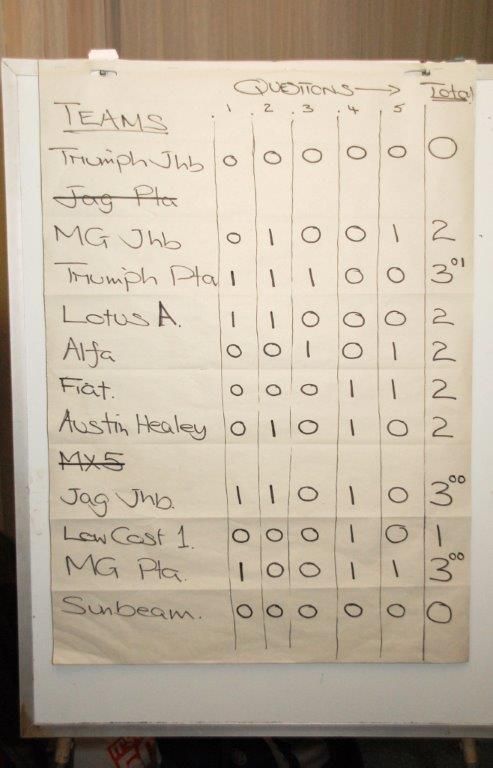 QUESTIONS → Total
TEAMS .1 .2 .3 .4 5
Triumph Jhb 0 0 0 0 0 0
Jag Pta
MG Jhb 0 1 0 0 1 2
Triumph Pta 1 1 1 0 0 3 01
Lotus A. 1 1 0 0 0 2
Alfa 0 0 1 0 1 2
Fiat. 0 0 0 1 1 2
Austin Healey 0 1 0 1 0 2
MX5
Jag Jhb. 1 1 0 1 0 3 00
Low Cost 1. 0 0 0 1 0 1
MG Pta. 1 0 0 1 1 3 00
Sunbeam. 0 0 0 0 0 0